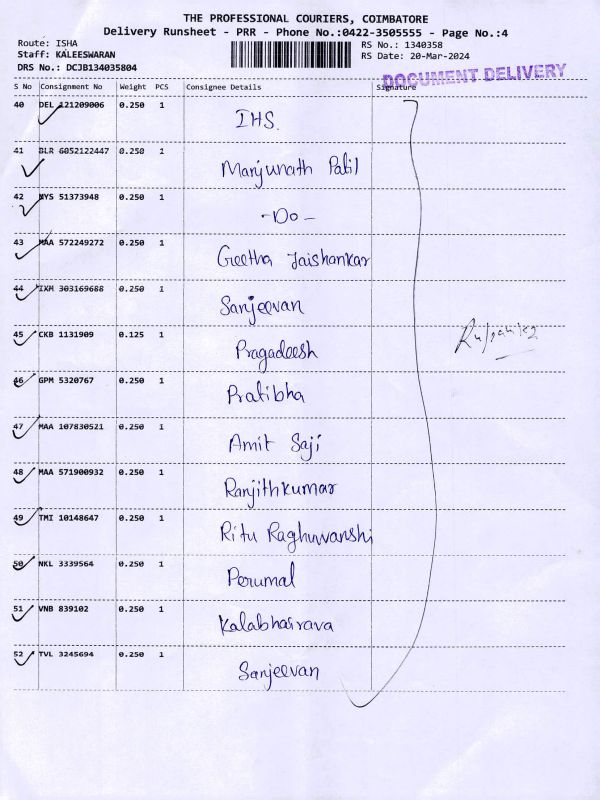 THE PROFESSIONAL COURIERS, COIMBATORE
Delivery Runsheet - PRR - Phone No.:0422-3505555 - Page No.:4
Route: ISHA
Staff: KALEESWARAN
DRS No.: DCJB134035804
RS No.: 1340358
RS Date: 20-Mar-2024
DOCUMENT DELIVERY
S No Consignment No Weight PCS Consignee Details Signature
40 DEL 121209006 0.250 1 IHS.
41 BLR 6052122447 0.250 1 Manjunath Patil
42 MYS 51373948 0.250 1 -Do-
43 MAA 572249272 0.250 1 Geetha Jaishankar
44 IXM 303169688 0.250 1 Sanjeevan
45 CKB 1131909 0.125 1 Pragadeesh
46 GPM 5320767 0.250 1 Pratibha
47 MAA 107830521 0.250 1 Amit Saji
48 MAA 571900932 0.250 1 Ranjithkumar
49 TMI 10148647 0.250 1 Ritu Raghuwanshi
50 NKL 3339564 0.250 1 Perumal
51 VNB 839102 0.250 1 Kalabhairava
52 TVL 3245694 0.250 1 Sanjeevan